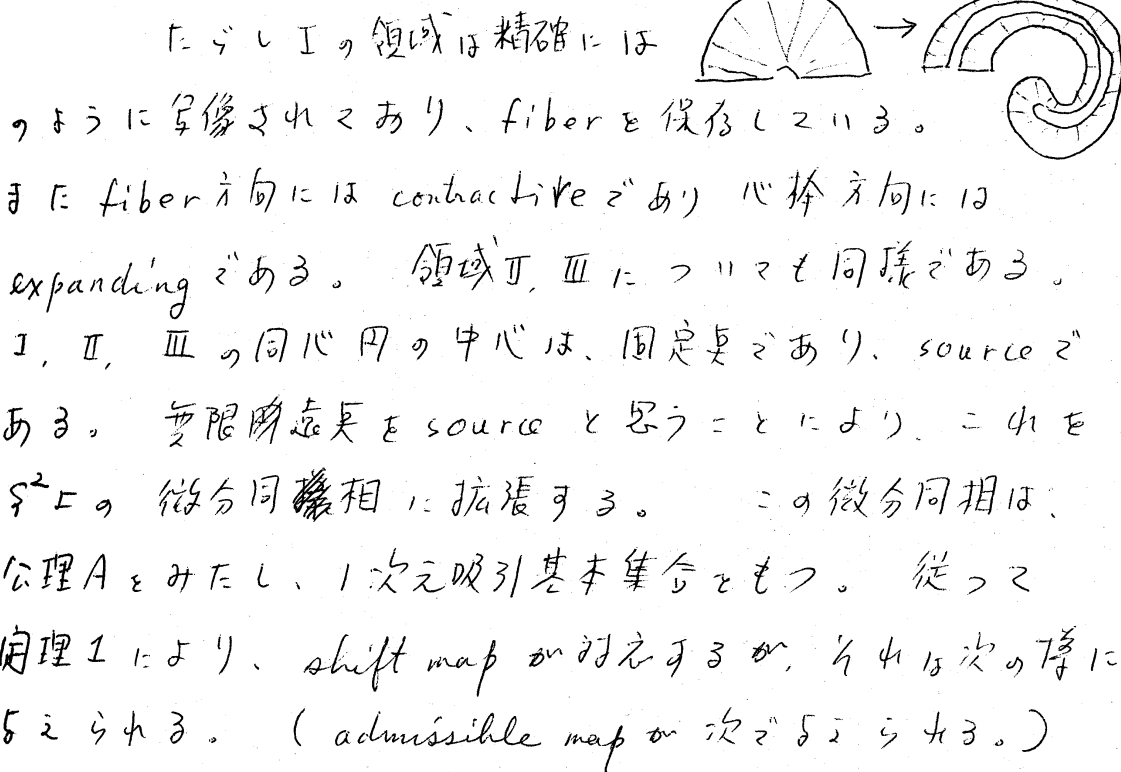 ただしIの領域は精確には
のように写像されてあり、fiberを保存している。
また fiber方向には contractiveであり 心棒方向には
expandingである。 領域II, IIIについても同様である。
I, II, IIIの同心円の中心は、固定点であり、sourceで
ある。 無限遠点をsourceと思うことにより、これを
S²上の 微分同相に拡張する。 この微分同相は、
公理Aをみたし、1次元吸引基本集合をもつ。 従って
定理1により、shift mapが対応するが、それは次の様に
与えられる。 (admissible mapが次で与えられる。)